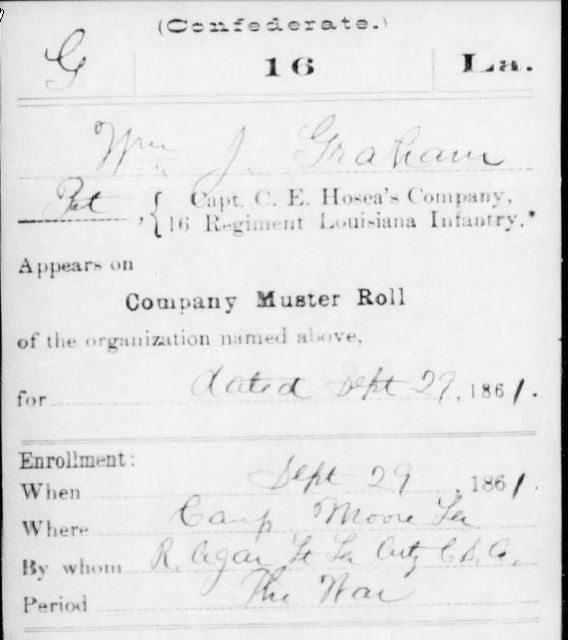 (Confederate.)
G 16 La.
Wm J. Graham
Pvt, { Capt. C. E. Hosea's Company,
16 Regiment Louisiana Infantry.*
Appears on
Company Muster Roll
of the organization named above,
for dated Sept 29, 1861.
Enrollment:
When Sept 29, 1861.
Where Camp Moore La
By whom R. Agar Lt La Arty C.S.A.
Period The War